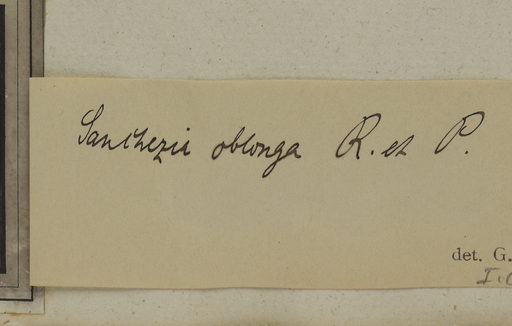 Sanchezia oblonga R. et P.
det. G.